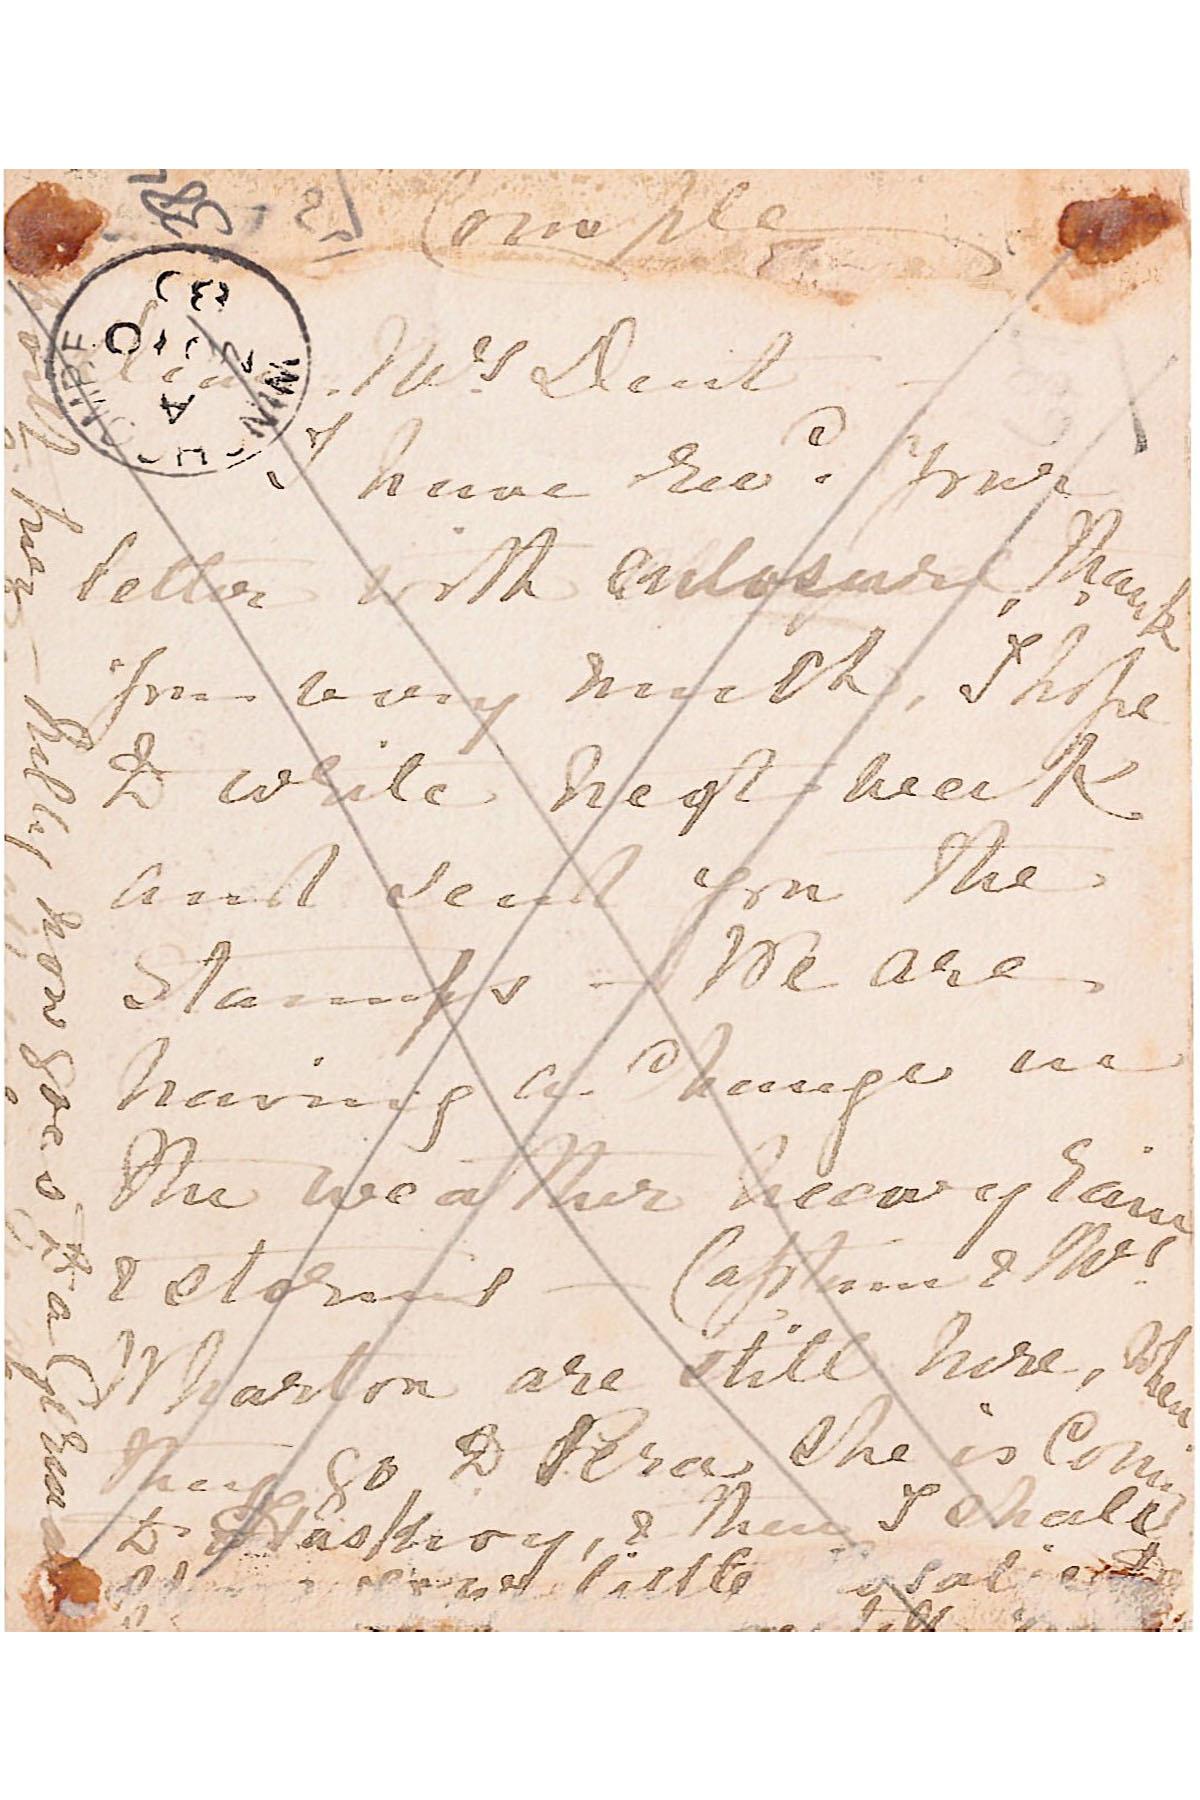 Comple
Dear Mrs Dent —
I have recd. your
letter with enclosure, Thank
you very much, I hope
to write next week
and send you the
Stamps — We are
having a Change in
the weather heavy Rain
& storms — Captain & Mrs
Wharton are still here, When
they go to Pera she is Coming
to Haskioy, & then I shall
little
still
her — Nelly now goes to a German
WINCHC
A